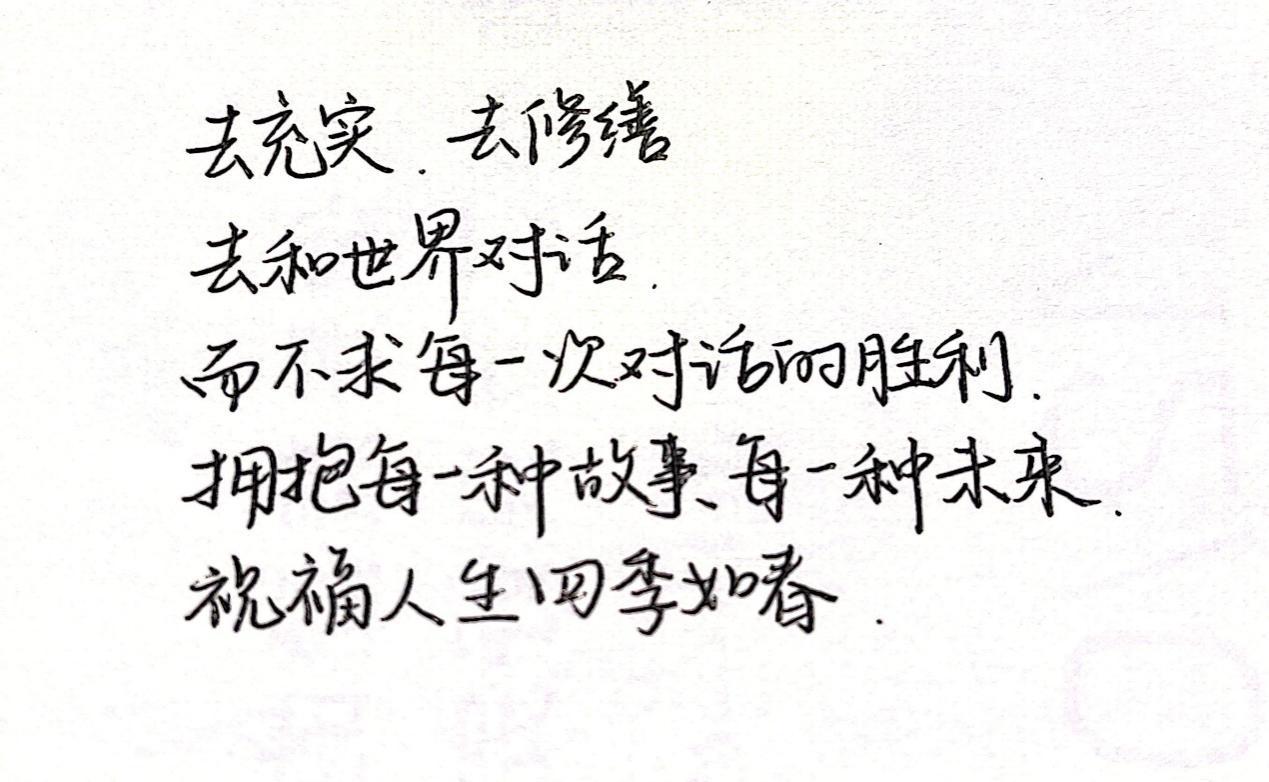 去充实.去修缮
去和世界对话.
而不求每一次对话的胜利.
拥抱每一种故事、每一种未来.
祝福人生四季如春.